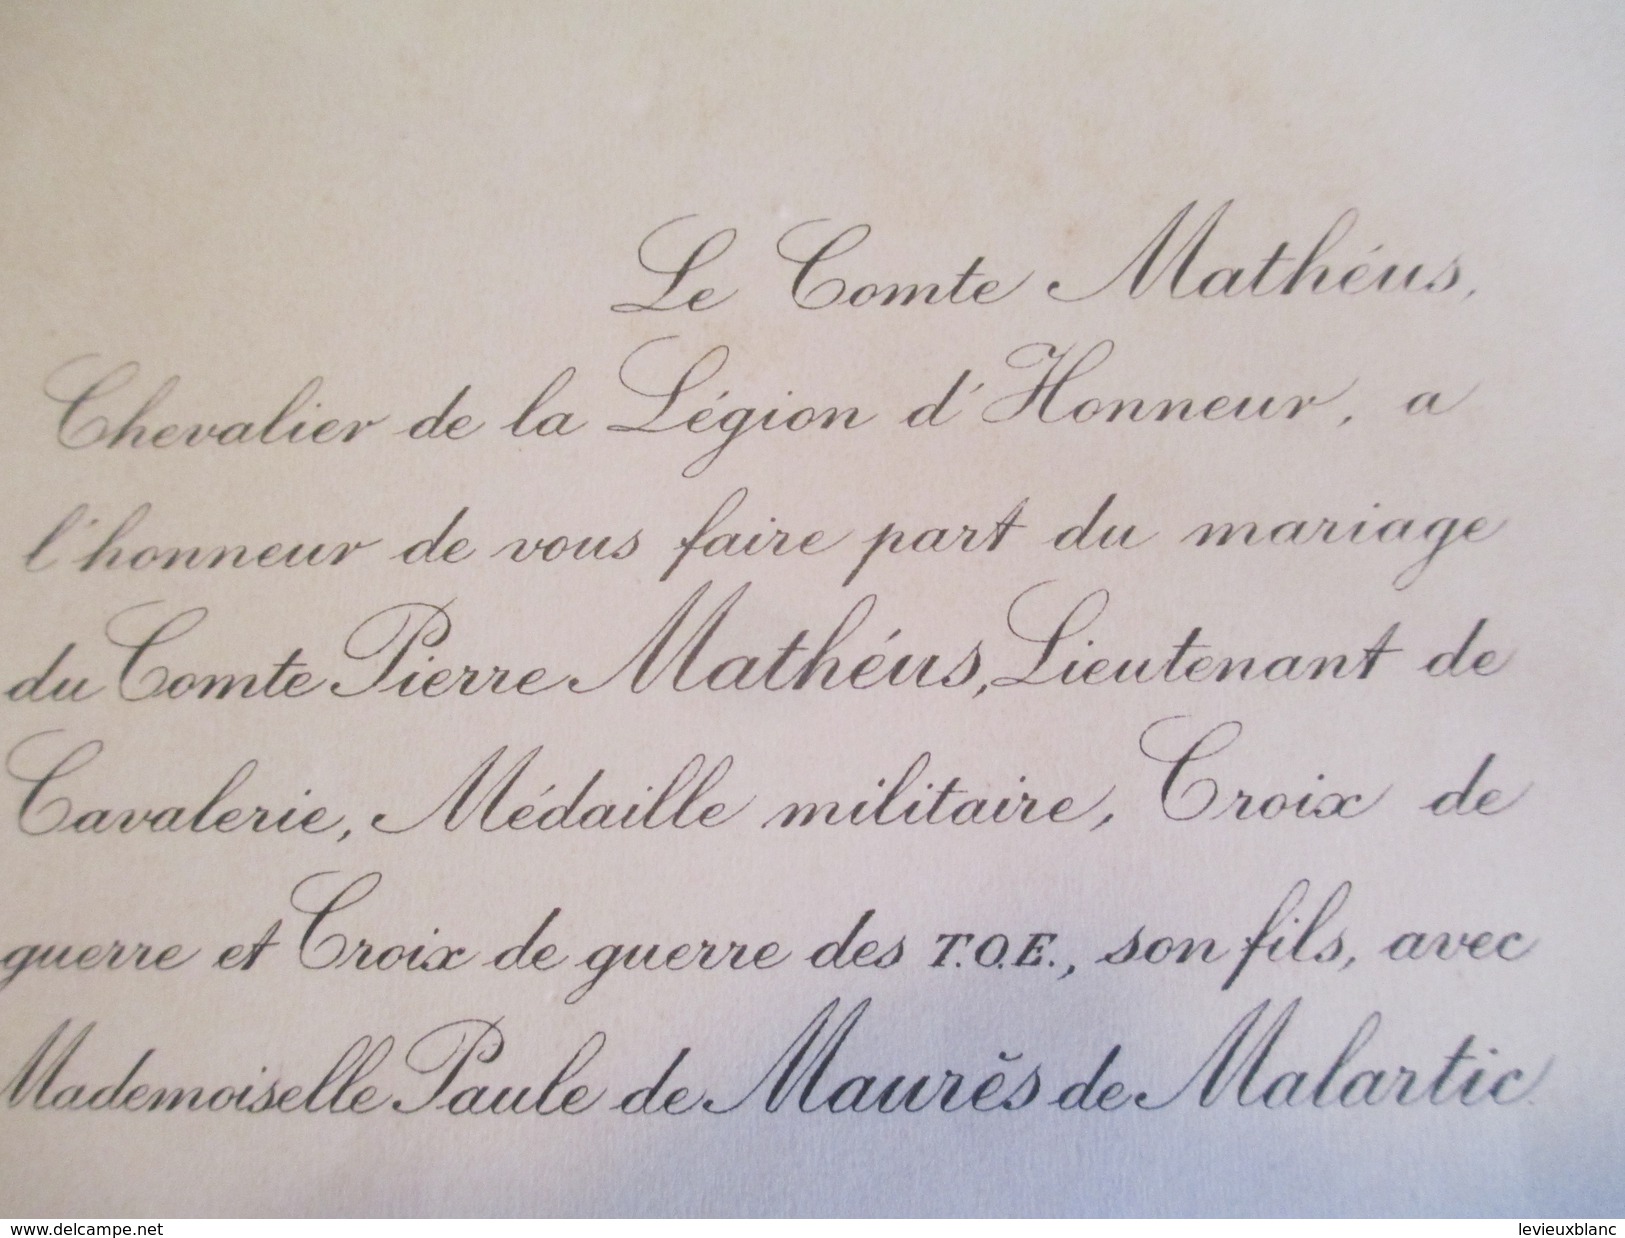 Le Comte Mathéus,
Chevalier de la Légion d'Honneur, a
l'honneur de vous faire part du mariage
du Comte Pierre Mathéus, Lieutenant de
Cavalerie, Médaille militaire, Croix de
guerre et Croix de guerre des T.O.E., son fils, avec
Mademoiselle Paule de Maurès de Malartic.
www.delcampe.net
levieuxblanc